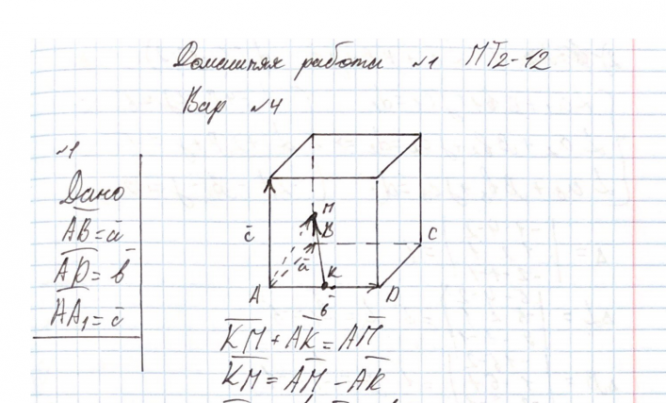 Домашняя работа №1 МТ2-12
Вар №4
№1
Дано
AB = a
AD = b
AA₁ = c
c
M
B
a
K
C
A
b
D
KM + AK = AM
KM = AM - AK